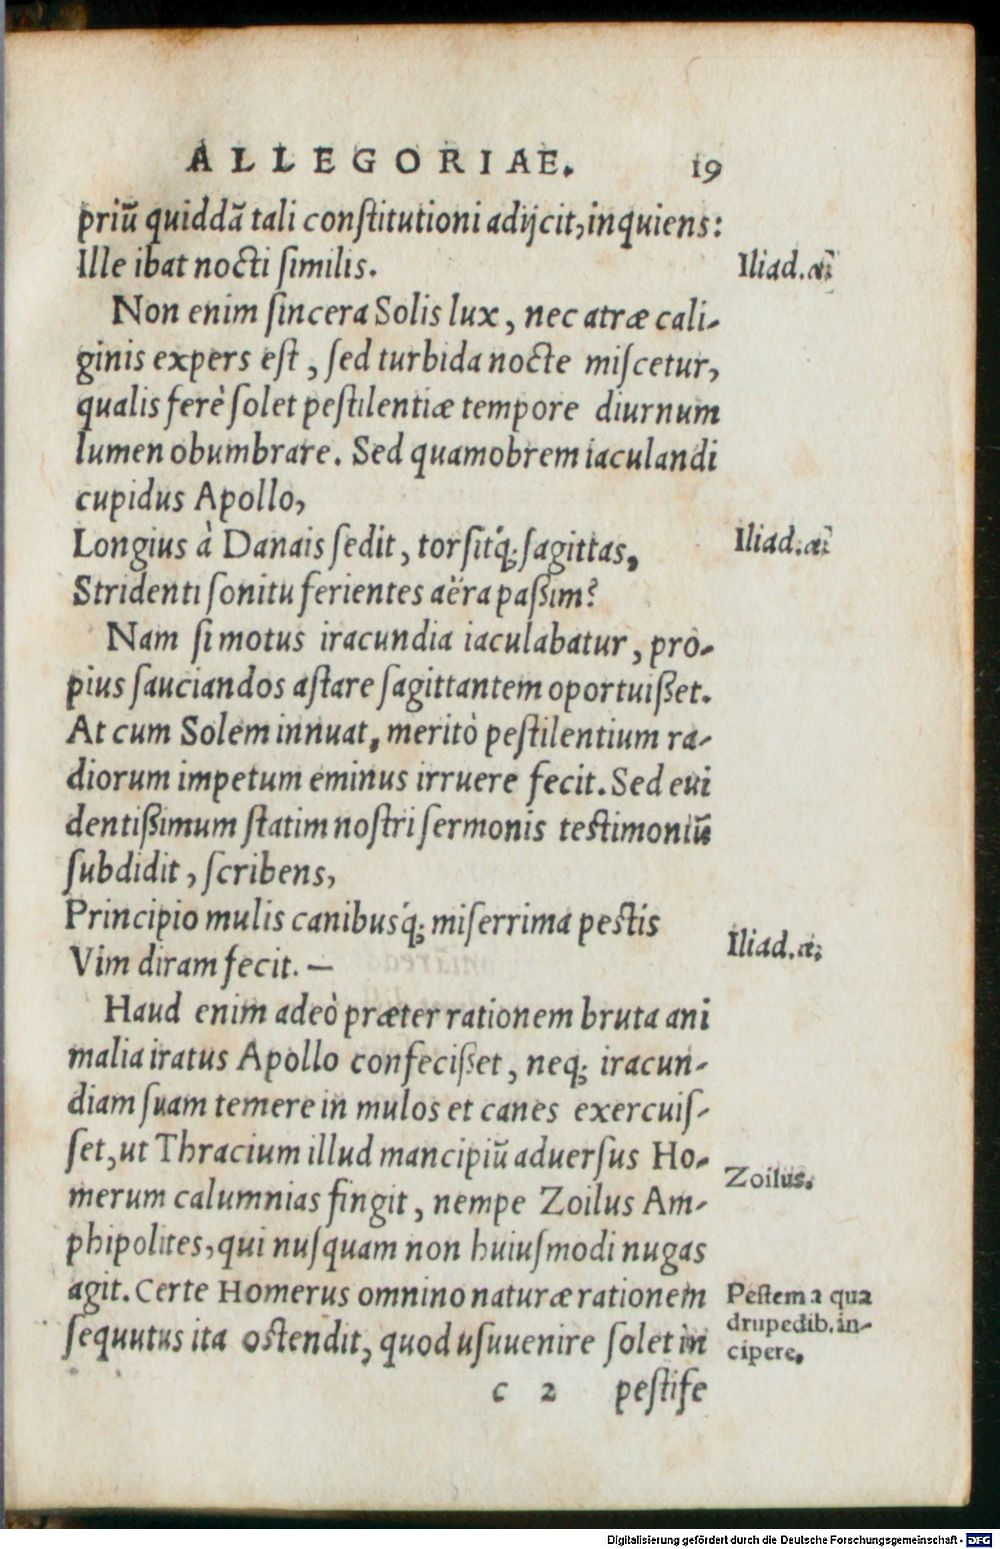 ALLEGORIAE. 19
priũ quiddã tali conſtitutioni adijcit, inquiens:
Ille ibat nocti ſimilis.
Iliad. α.
Non enim ſincera Solis lux, nec atræ cali-
ginis expers eſt, ſed turbida nocte miſcetur,
qualis ferè ſolet peſtilentiæ tempore diurnum
lumen obumbrare. Sed quamobrem iaculandi
cupidus Apollo,
Longius à Danais ſedit, torſitq́; ſagittas,
Iliad. α.
Stridenti ſonitu ferientes aëra paßim?
Nam ſi motus iracundia iaculabatur, pro-
pius ſauciandos aſtare ſagittantem oportuißet.
At cum Solem innuat, meritò peſtilentium ra-
diorum impetum eminus irruere fecit. Sed eui
dentißimum ſtatim noſtri ſermonis teſtimoniũ
ſubdidit, ſcribens,
Principio mulis canibusq́; miſerrima peſtis
Iliad. α.
Vim diram fecit. —
Haud enim adeò præter rationem bruta ani
malia iratus Apollo confecißet, neq; iracun-
diam ſuam temere in mulos et canes exercuiſ-
ſet, ut Thracium illud mancipiũ aduerſus Ho-
Zoilus.
merum calumnias fingit, nempe Zoilus Am-
phipolites, qui nuſquam non huiuſmodi nugas
agit. Certe Homerus omnino naturæ rationem
ſequutus ita oſtendit, quod uſuuenire ſolet in
Peſtem a qua
drupedib. in-
cipere.
c 2 peſtife
Digitalisierung gefördert durch die Deutsche Forschungsgemeinschaft - DFG